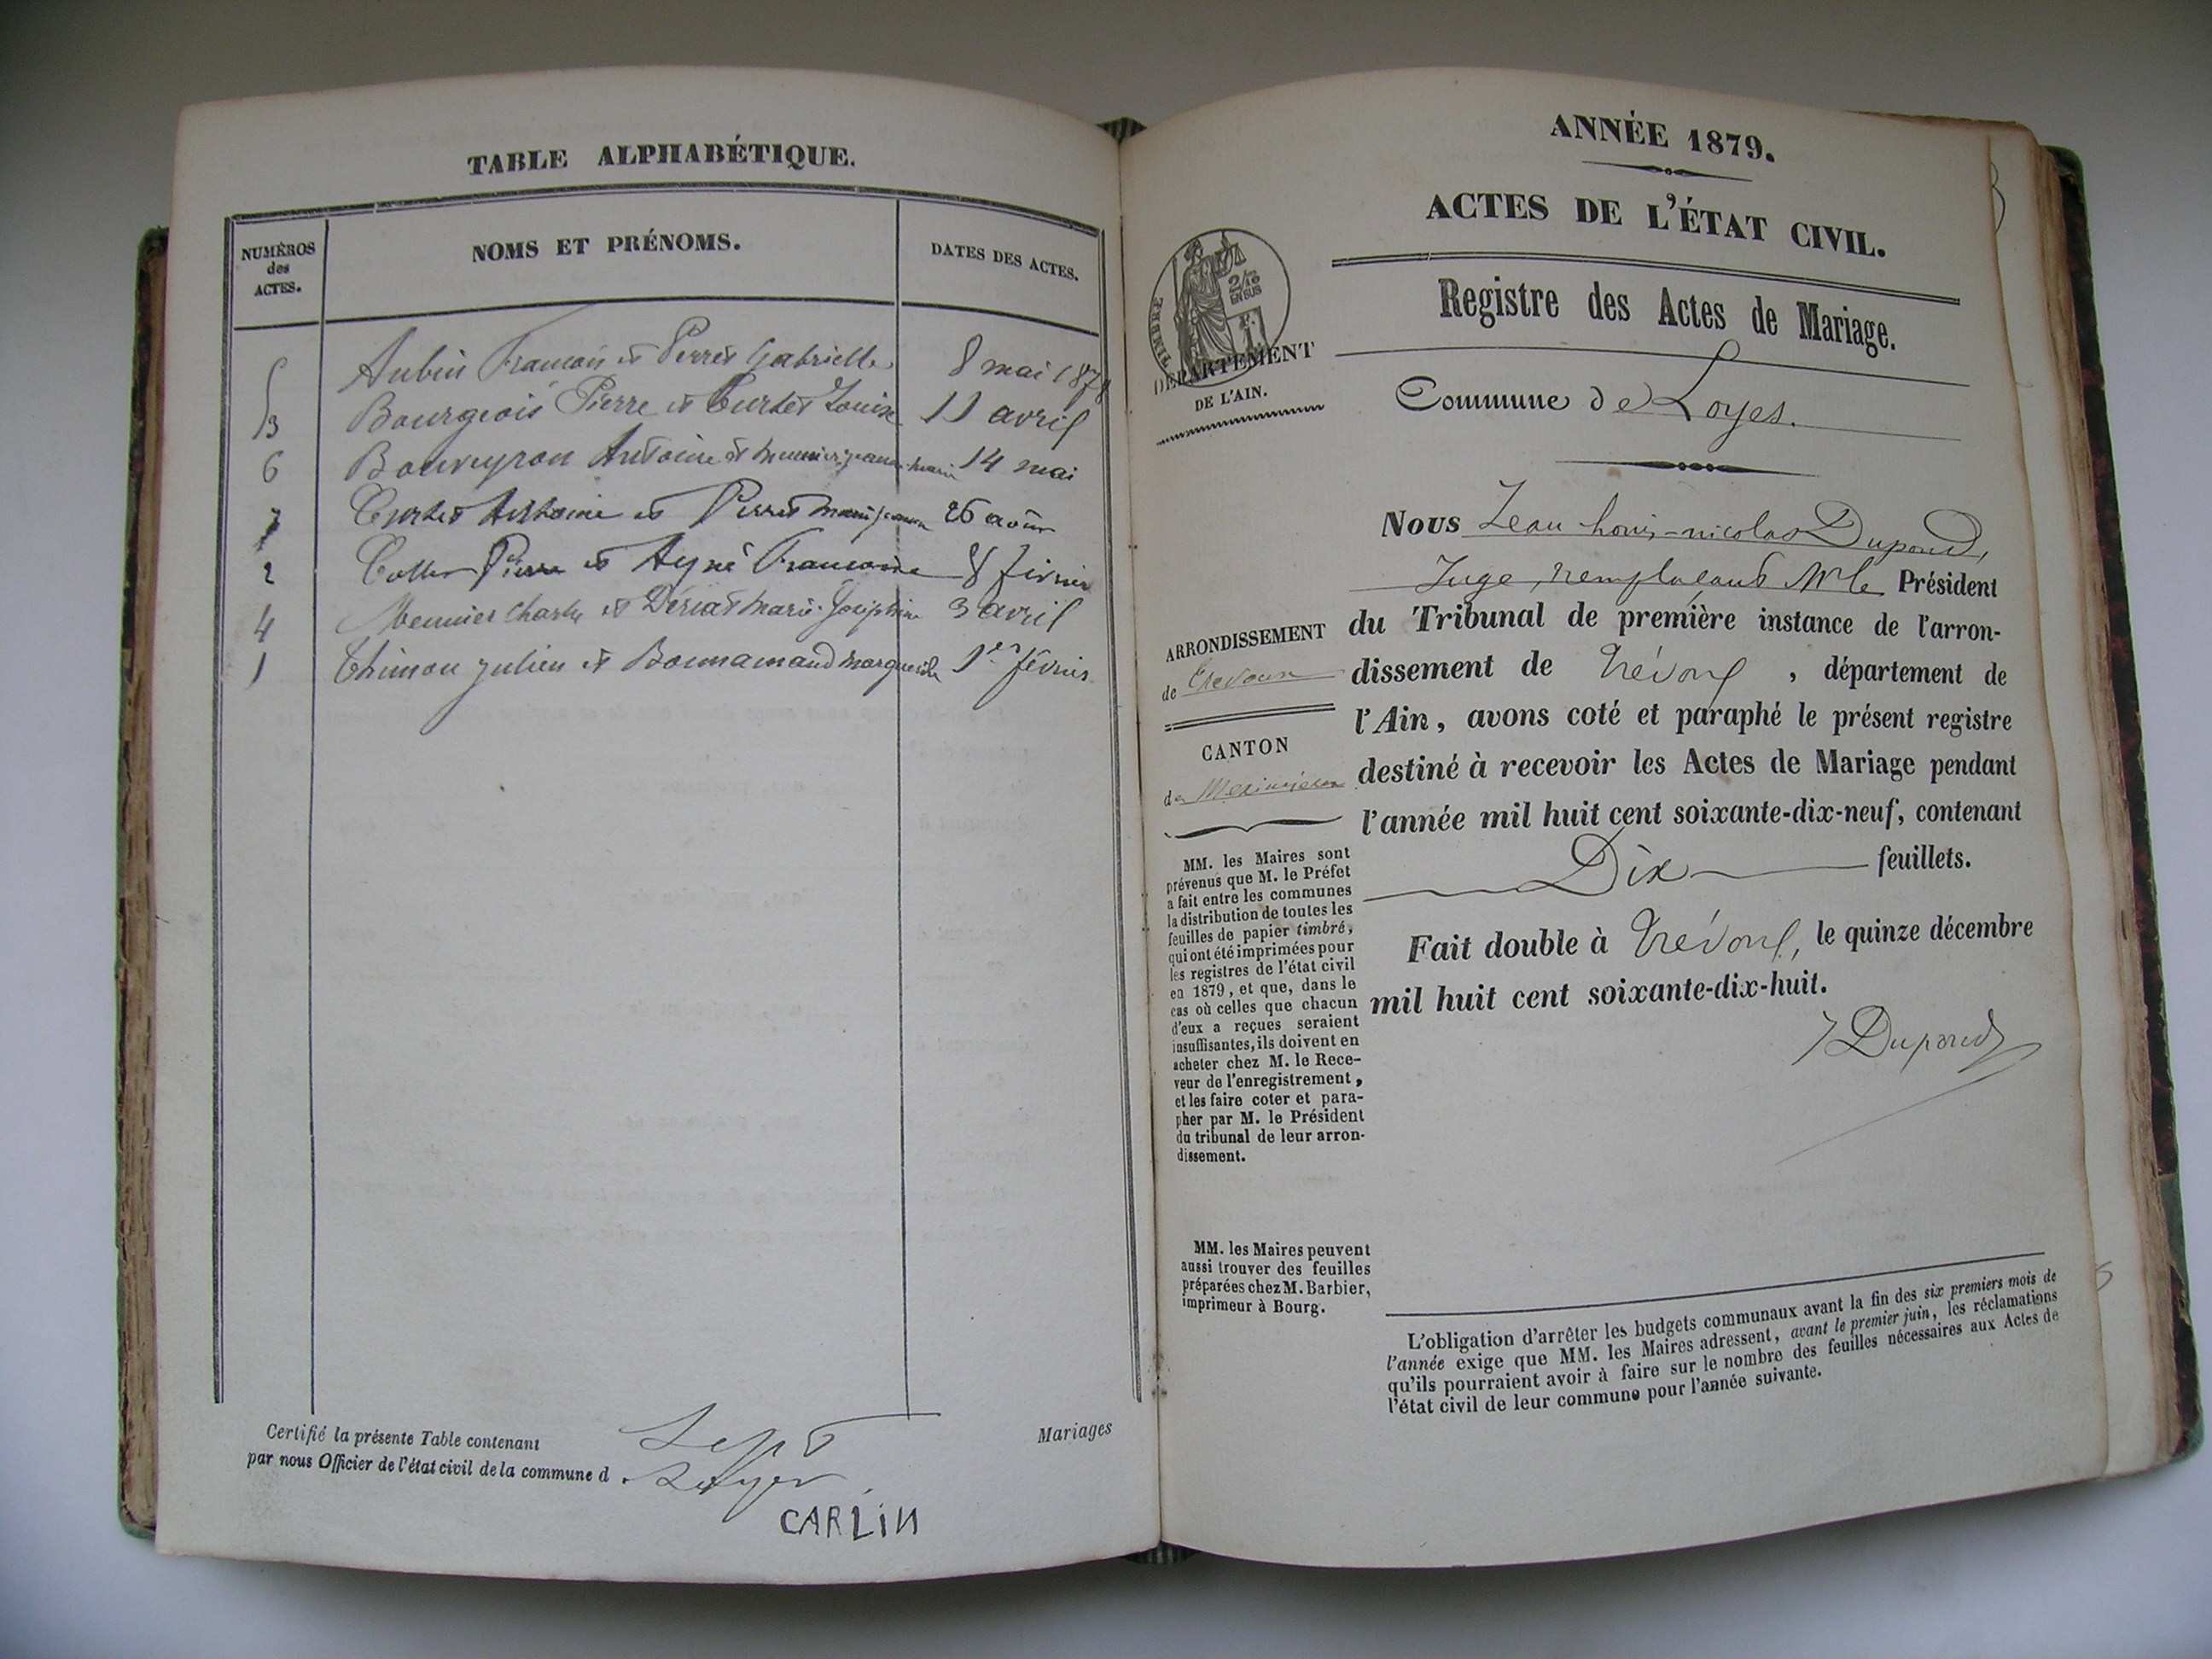 TABLE ALPHABÉTIQUE.
NUMÉROS
des
ACTES.
NOMS ET PRÉNOMS.
DATES DES ACTES.
5 Aubin François et Perret Gabrielle 8 mai 1878
3 Bourgeois Pierre et Curtet Louise 11 avril
6 Bouveyron Antoine et meunier jeanne marie 14 mai
7 Curtet Antoine et Perret marie jeanne 26 août
2 Pierre et Françoise 8 février
4 Meunier Charles et marie Joséphine 3 avril
1 Thimon julien et Bonnamand marguerite 1er février
Certifié la présente Table contenant Sept Mariages
par nous Officier de l'état civil de la commune d Loyes
CARLIN
ANNÉE 1879.
ACTES DE L'ÉTAT CIVIL.
Registre des Actes de Mariage.
TIMBRE
2/10
EN SUS
DÉPARTEMENT
DE L'AIN.
Commune de Loyes.
Nous Jean Louis-nicolas Dupond,
Juge, remplaçant Mr le Président
du Tribunal de première instance de l'arron-
dissement de Trévoux, département de
l'Ain, avons coté et paraphé le présent registre
destiné à recevoir les Actes de Mariage pendant
l'année mil huit cent soixante-dix-neuf, contenant
Dix feuillets.
Fait double à Trévoux, le quinze décembre
mil huit cent soixante-dix-huit.
J Dupond
ARRONDISSEMENT
de Trévoux
CANTON
de Meximieux
MM. les Maires sont
prévenus que M. le Préfet
a fait entre les communes
la distribution de toutes les
feuilles de papier timbré,
qui ont été imprimées pour
les registres de l'état civil
en 1879, et que, dans le
cas où celles que chacun
d'eux a reçues seraient
insuffisantes, ils doivent en
acheter chez M. le Rece-
veur de l'enregistrement,
et les faire coter et para-
pher par M. le Président
du tribunal de leur arron-
dissement.
MM. les Maires peuvent
aussi trouver des feuilles
préparées chez M. Barbier,
imprimeur à Bourg.
L'obligation d'arrêter les budgets communaux avant la fin des six premiers mois de
l'année exige que MM. les Maires adressent, avant le premier juin, les réclamations
qu'ils pourraient avoir à faire sur le nombre des feuilles nécessaires aux Actes de
l'état civil de leur commune pour l'année suivante.